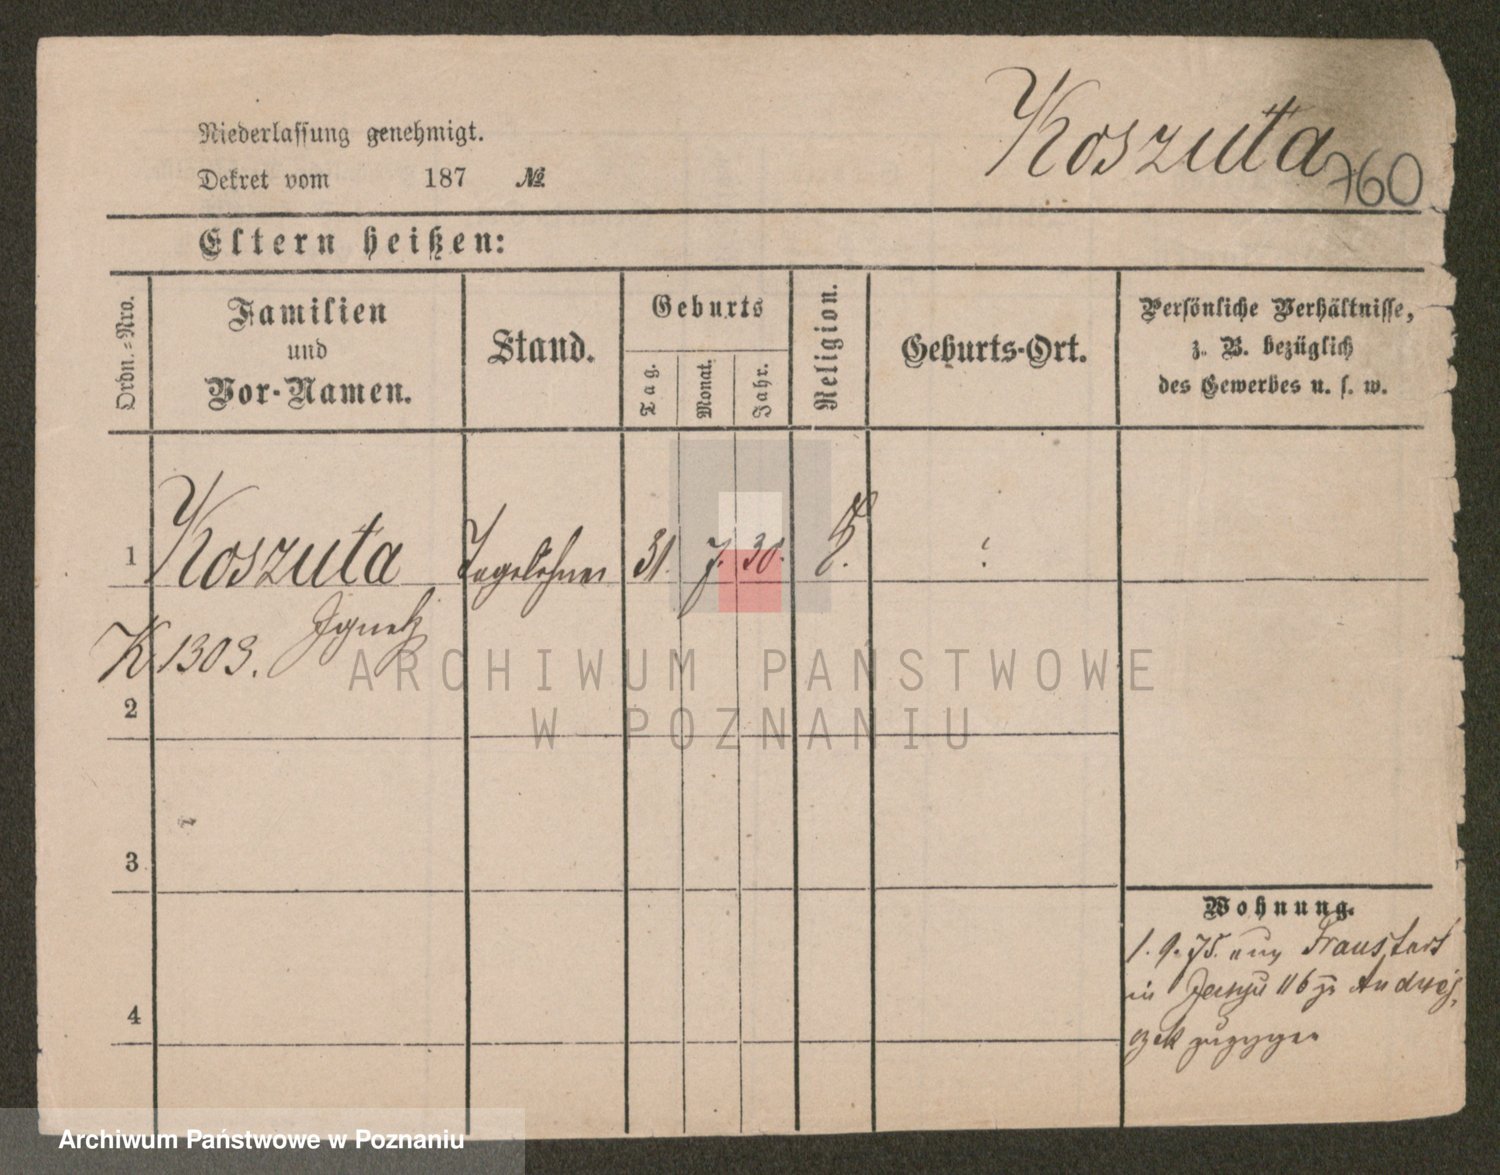 Koszuta
760
Niederlassung genehmigt.
Dekret vom 187 №
Eltern heißen:
Ordn.-Nro.
Familien
und
Vor-Namen.
Stand.
Geburts
Tag.
Monat.
Jahr.
Religion.
Geburts-Ort.
Persönliche Verhältnisse,
z. B. bezüglich
des Gewerbes u. s. w.
1 Koszuta Tagelöhner 31. 7. 30. K.
Ignatz
K. 1303.
ARCHIWUM PAŃSTWOWE
W POZNANIU
2
3
4
Wohnung.
1. 9. 75. aus Fraustadt
in 116 zu Andrzej
czak zugezogen
Archiwum Państwowe w Poznaniu